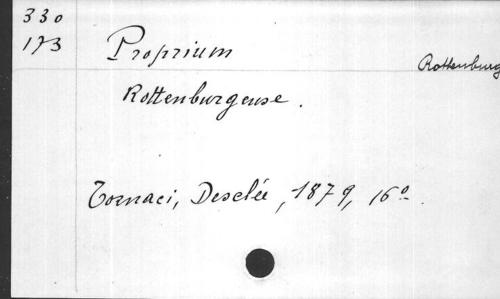 330
173
Proprium
Rottenburg
Rottenburgense.
Tornaci, Desclée, 1879, 16º.